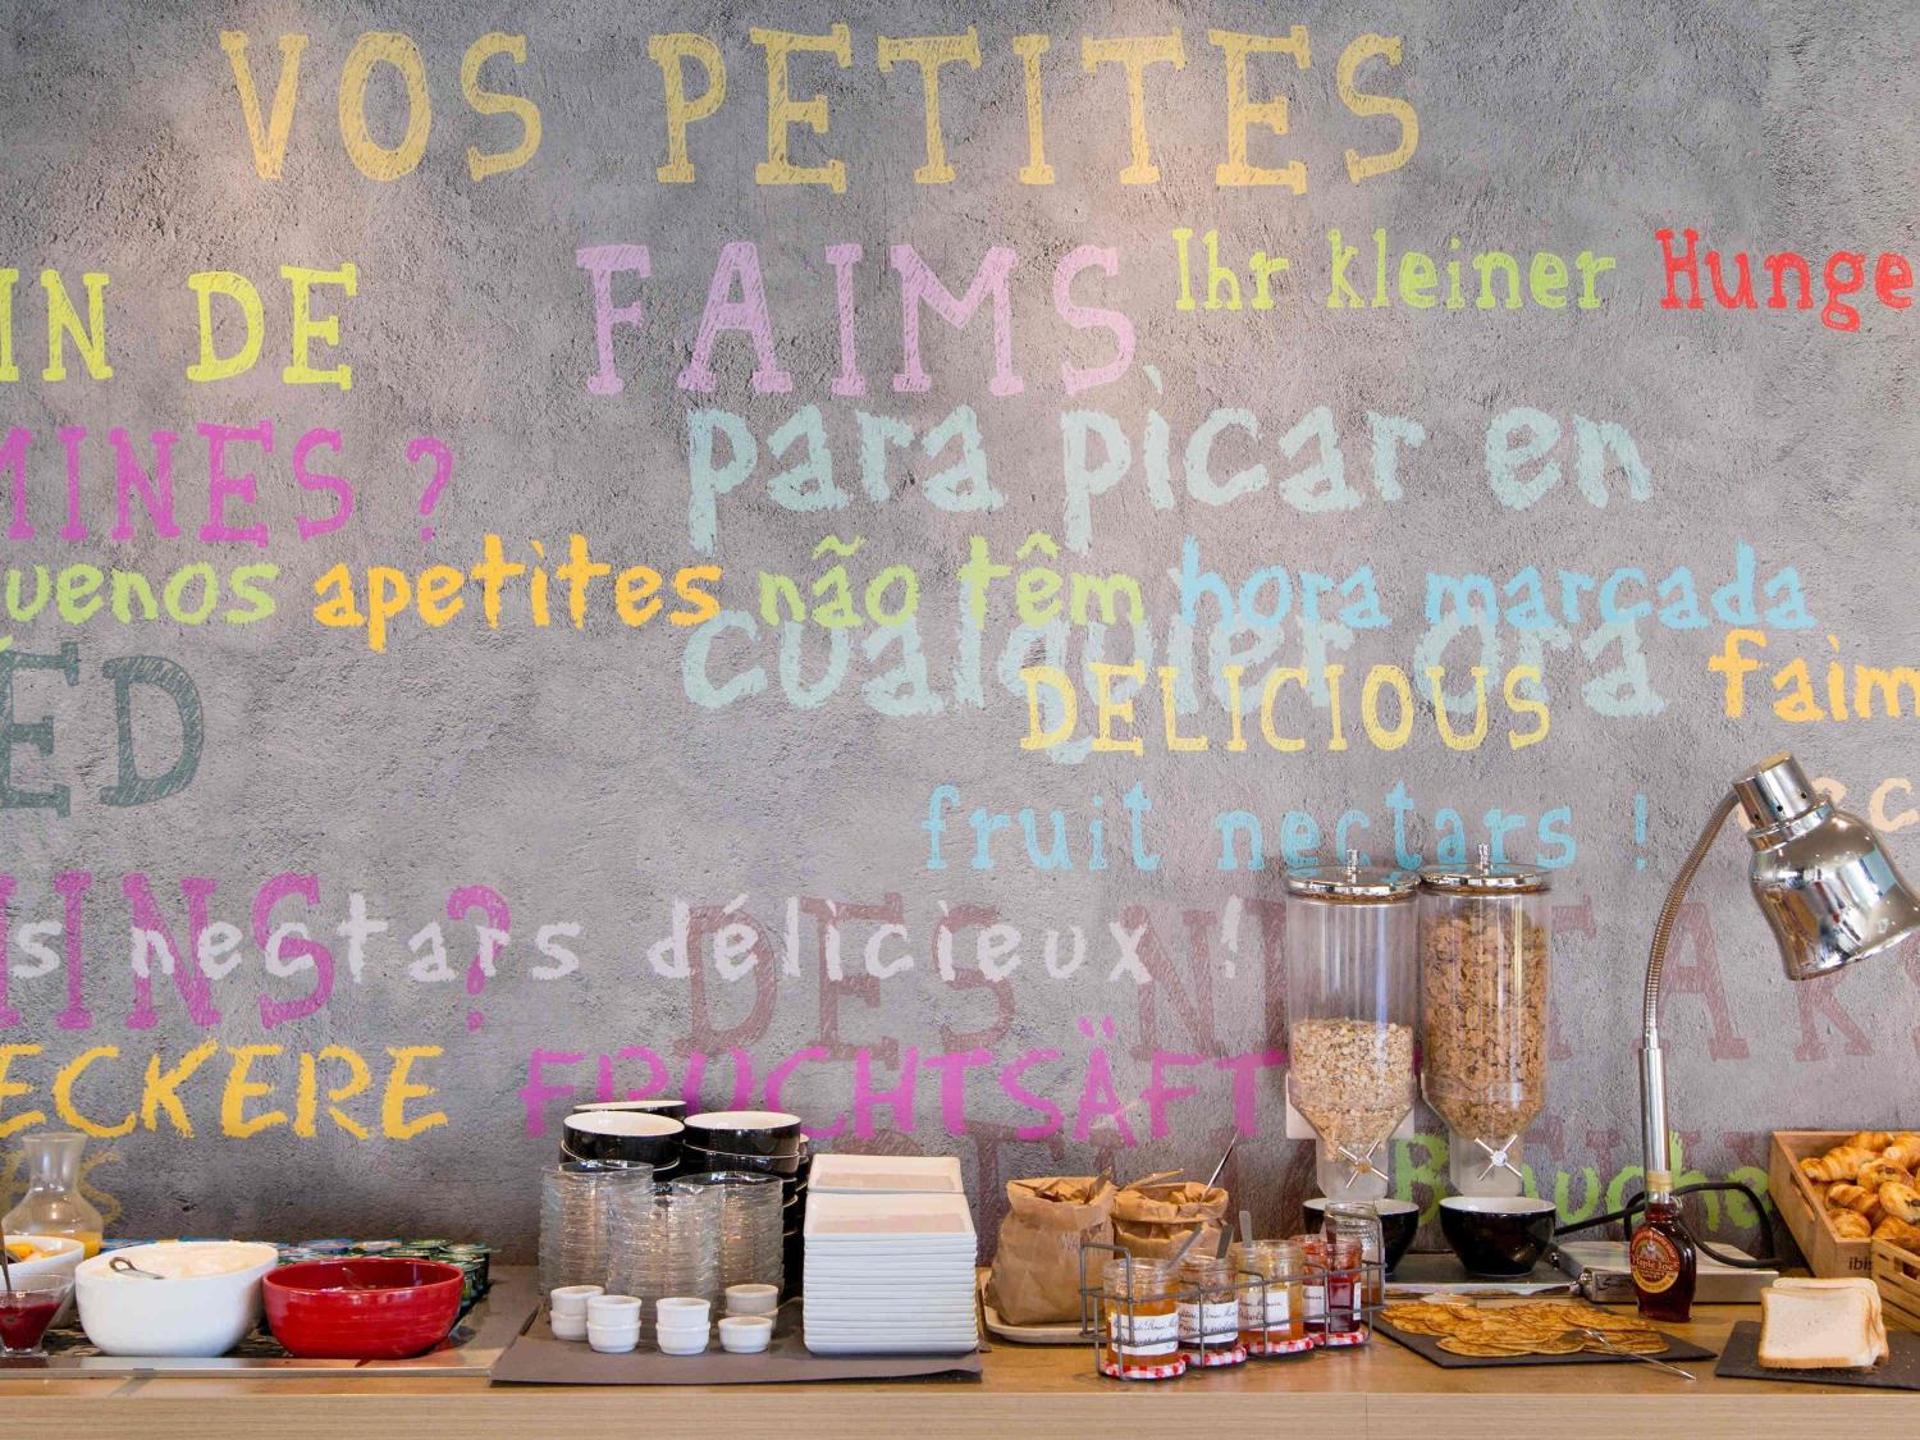 VOS PETITES
FAIMS
Ihr kleiner Hunge
IN DE
para picar en
MINES ?
uenos apetites não têm hora marcada
cualquier ora
faim
ED
DELICIOUS
fruit nectars !
s nectars délicieux !
IINS ?
DES N TAR
ECKERE FRUCHTSÄFT
B uche
ibis
Maple Joe
Bonne Maman